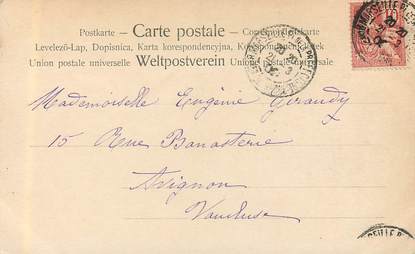 Postkarte – Carte postale – Correspondenzkarte
Levelező-Lap, Dopisnica, Karta korespondencyjna, Korespondenční lístek
Union postale universelle Weltpostverein Unione postale universale
Mademoiselle Eugénie Giraudy
15 Rue Banasterie
Avignon
Vaucluse